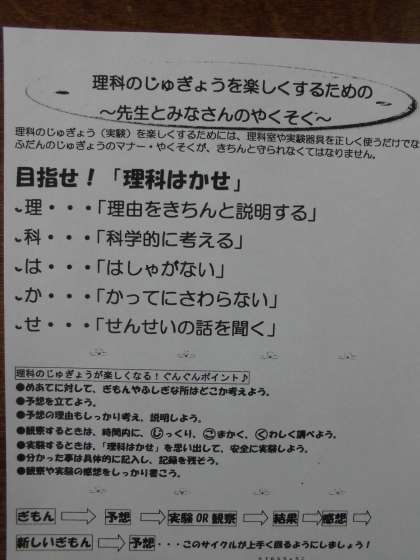 理科のじゅぎょうを楽しくするための
～先生とみなさんのやくそく～
理科のじゅぎょう（実験）を楽しくするためには、理科室や実験器具を正しく使うだけでな
ふだんのじゅぎょうのマナー・やくそくが、きちんと守られなくてはなりません。
目指せ！「理科はかせ」
理・・・「理由をきちんと説明する」
科・・・「科学的に考える」
は・・・「はしゃがない」
か・・・「かってにさわらない」
せ・・・「せんせいの話を聞く」
理科のじゅぎょうが楽しくなる！ぐんぐんポイント♪
●めあてに対して、ぎもんやふしぎな所はどこか考えよう。
●予想を立てよう。
●予想の理由もしっかり考え、説明しよう。
●観察するときは、時間内に、じっくり、こまかく、くわしく調べよう。
●実験するときは、「理科はかせ」を思い出して、安全に実験しよう。
●分かった事は具体的に記入し、記録を残そう。
●観察や実験の感想をしっかり書こう。
ぎもん ⇨ 予想 ⇨ 実験 OR 観察 ⇨ 結果 ⇨ 感想 ⇨
新しいぎもん ⇨ 予想・・・このサイクルが上手く廻るようにしましょう！